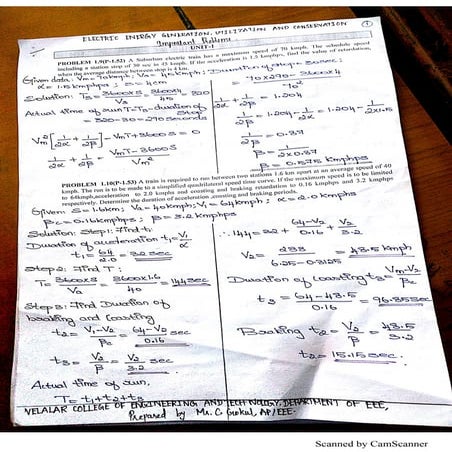 ELECTRIC ENERGY GENERATION, UTILIZATION AND CONSERVATION
①
Important Problems
UNIT-I
PROBLEM 1.9(P-1.52) A Suburban electric train has a maximum speed of 70 kmph. The schedule speed
including a station stop of 30 sec is 45 kmph. If the acceleration is 1.5 kmphps, find the value of retardation,
when the average distance between stop is 4 km.
Given data: Vm = 70kmph; Vs = 45kmph; Duration of stop = 30sec;
α = 1.5 kmphps; S = 4cm
Solution: Ts = 3600×S / Vs = 3600×4 / 45 = 320
Actual time of run T = Ts - duration of stop
= 320-30 = 290 seconds
Vm² [1/2α + 1/2β] - VmT + 3600 S = 0
1/2α + 1/2β = VmT - 3600S / Vm²
= 70×290 - 3600×4 / 70²
1/2α + 1/2β = 1.204
1/2β = 1.204 - 1/2α = 1.204 - 1/2×1.5
1/2β = 0.87
β = 1/2×0.87
β = 0.575 kmphps
PROBLEM 1.10(P-1.53) A train is required to run between two stations 1.6 km apart at an average speed of 40
kmph. The run is to be made to a simplified quadrilateral speed time curve. If the maximum speed is to be limited
to 64kmph, acceleration to 2.0 kmphs and coasting and braking retardation to 0.16 kmphps and 3.2 kmphps
respectively. Determine the duration of acceleration, coasting and braking periods.
Given: S = 1.6km; Va = 40kmph; V1 = 64kmph; α = 2.0 kmphs
βc = 0.16kmphps; β = 3.2 kmphps
Solution: Step 1: Find t1
Duration of acceleration t1 = V1/α
t1 = 64/2.0 = 32 sec
Step 2: Find T:
T = 3600×S / Va = 3600×1.6 / 40 = 144 sec
Step 3: Find Duration of
braking and Coasting
t2 = V1-V2 / βc = 64-V2 / 0.16 sec
t3 = V2/β = V2/3.2 sec
Actual time of run,
T = t1+t2+t3
∴ 144 = 32 + 64-V2 / 0.16 + V2 / 3.2
V2 = 288 / 6.25-0.3125 = 48.5 kmph
Duration of coasting t3 = Vm-V2 / βc
t3 = 64-48.5 / 0.16 = 96.85 sec
Braking t2 = V2/β = 48.5/3.2
t2 = 15.15 sec.
VELALAR COLLEGE OF ENGINEERING AND TECHNOLOGY, DEPARTMENT OF EEE,
Prepared by Mr. C Gokul, AP/EEE.
Scanned by CamScanner